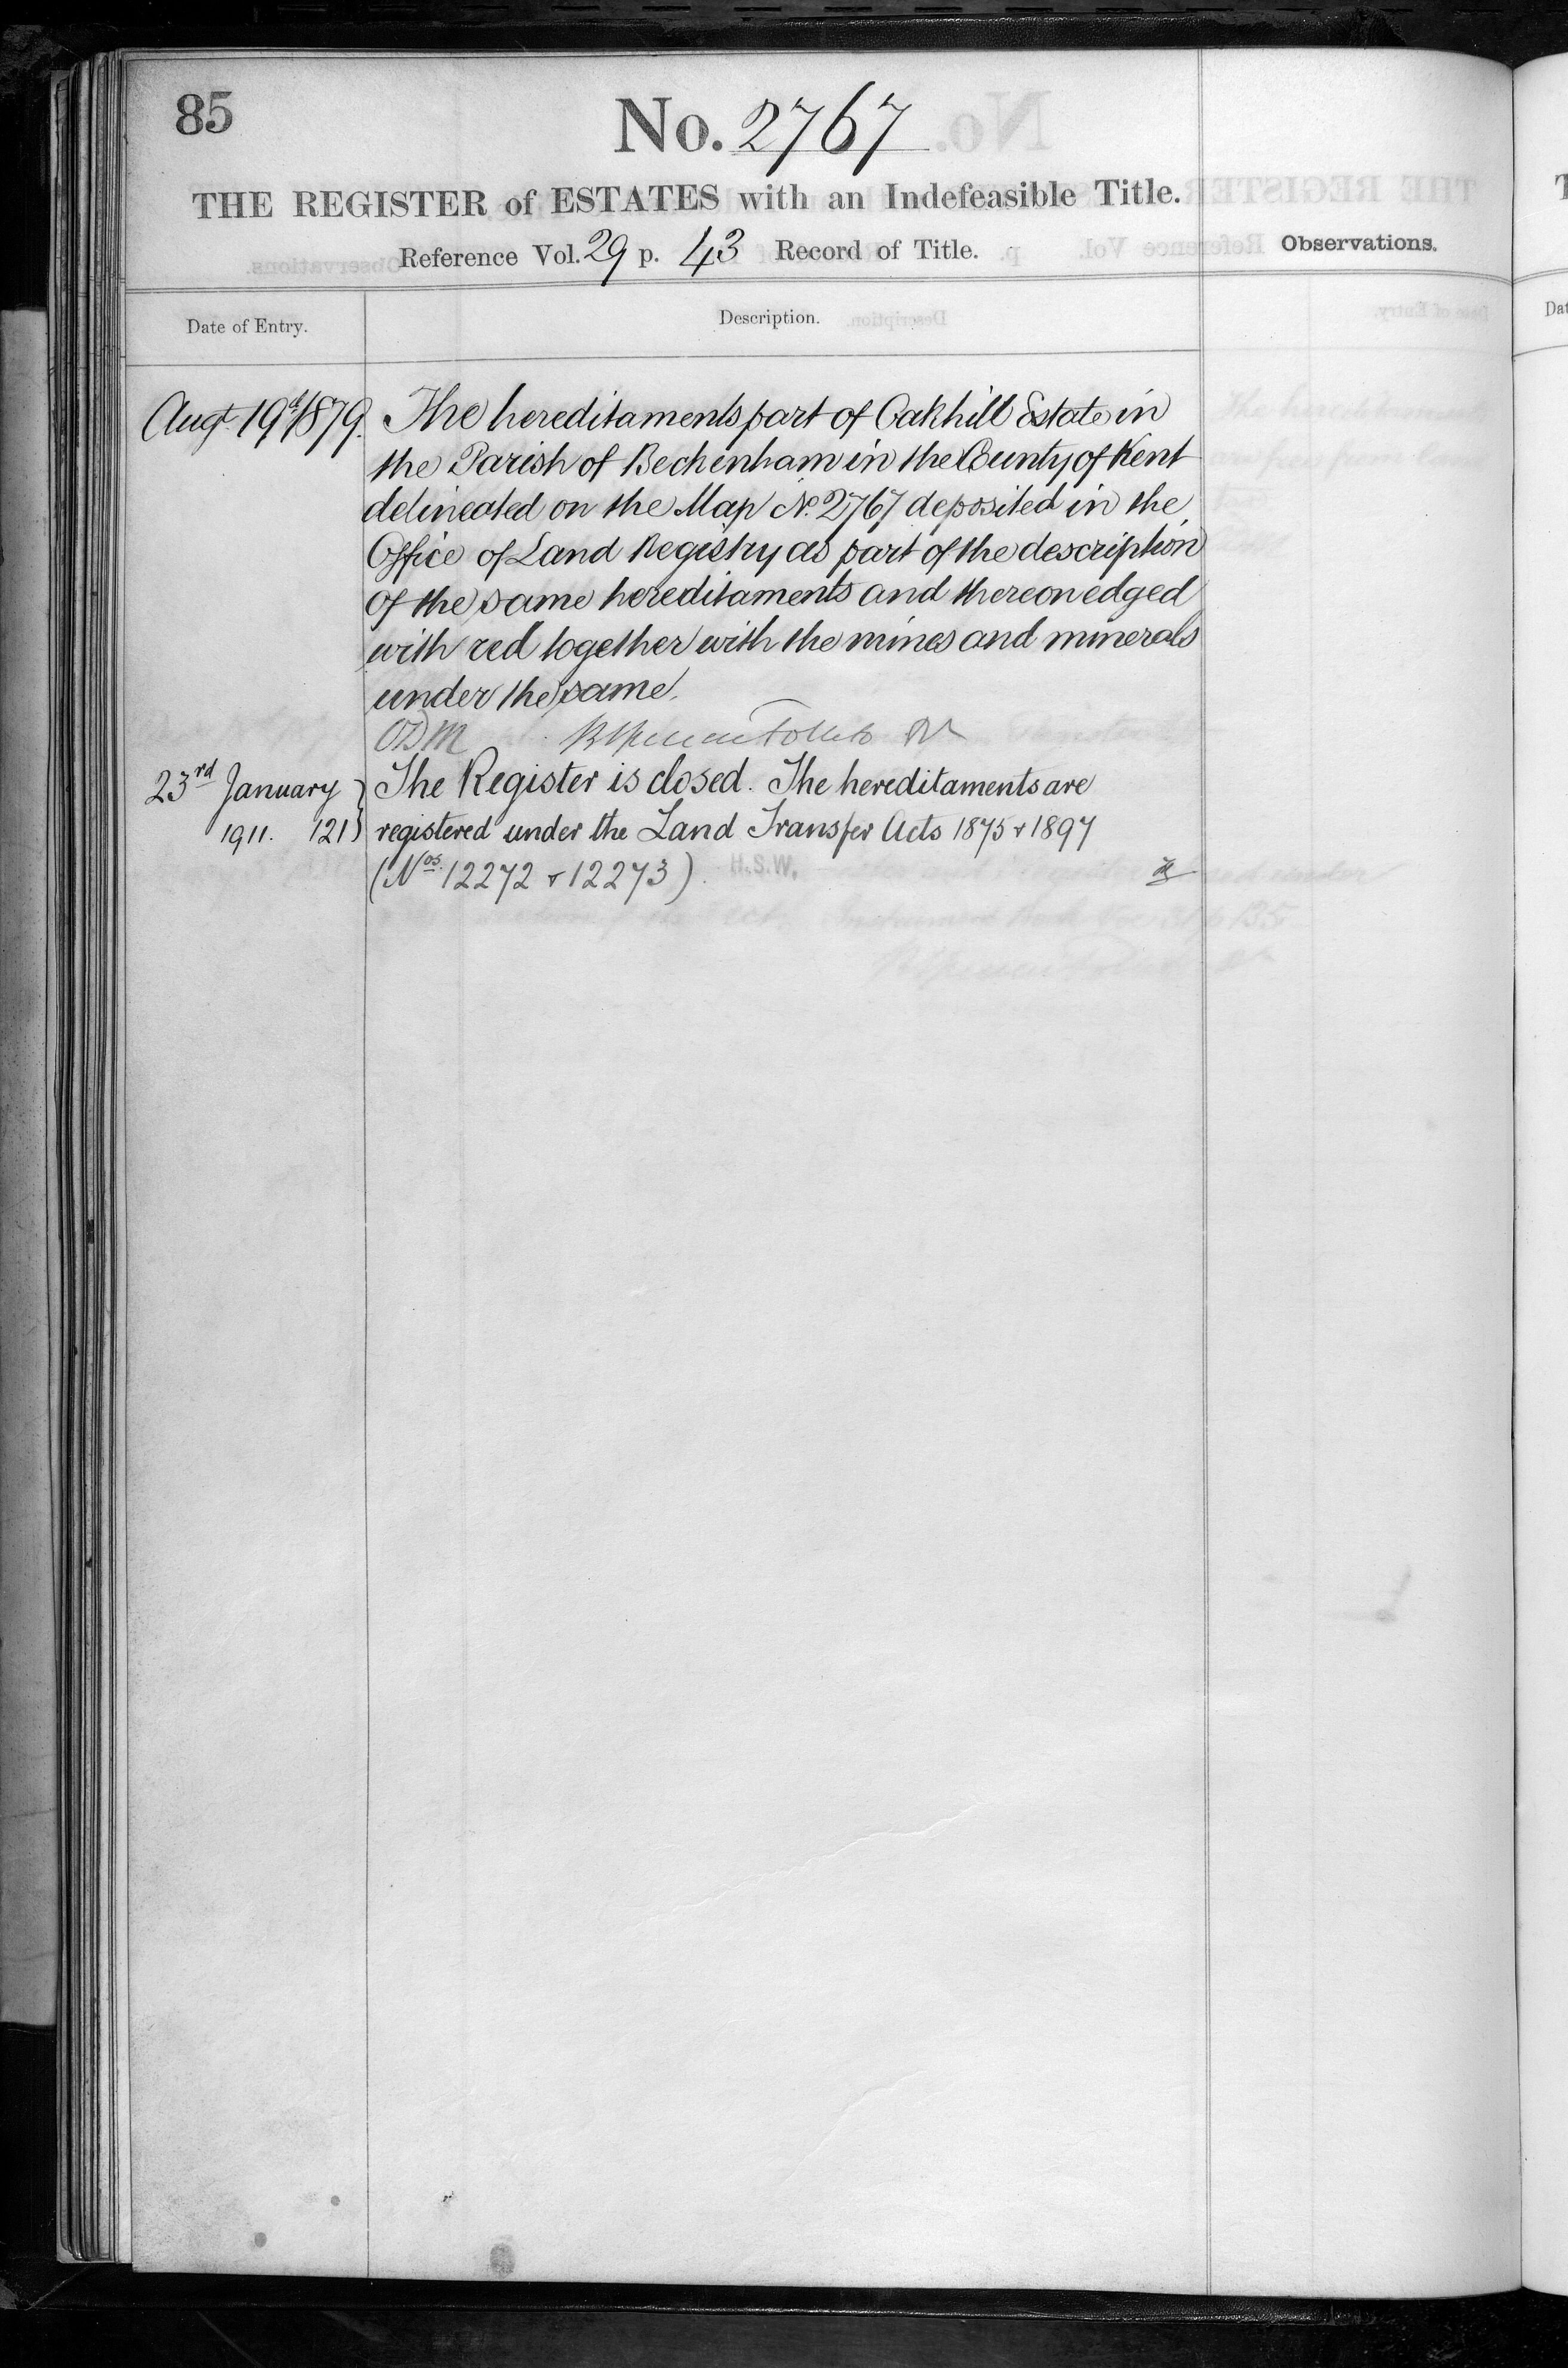 85
No. 2767
THE REGISTER of ESTATES with an Indefeasible Title.
Reference Vol. 29 p. 43 Record of Title.
Observations.
Date of Entry.
Description.
Augt. 19th 1879. The hereditaments part of Oakhill Estate in
the Parish of Beckenham in the County of Kent
delineated on the Map No. 2767 deposited in the
Office of Land Registry as part of the description
of the same hereditaments and thereon edged
with red together with the mines and minerals
under the same.
ODM
23rd January } The Register is closed. The hereditaments are
1911. 121 } registered under the Land Transfer Acts 1875 & 1897
(Nos. 12272 & 12273). H.S.W.